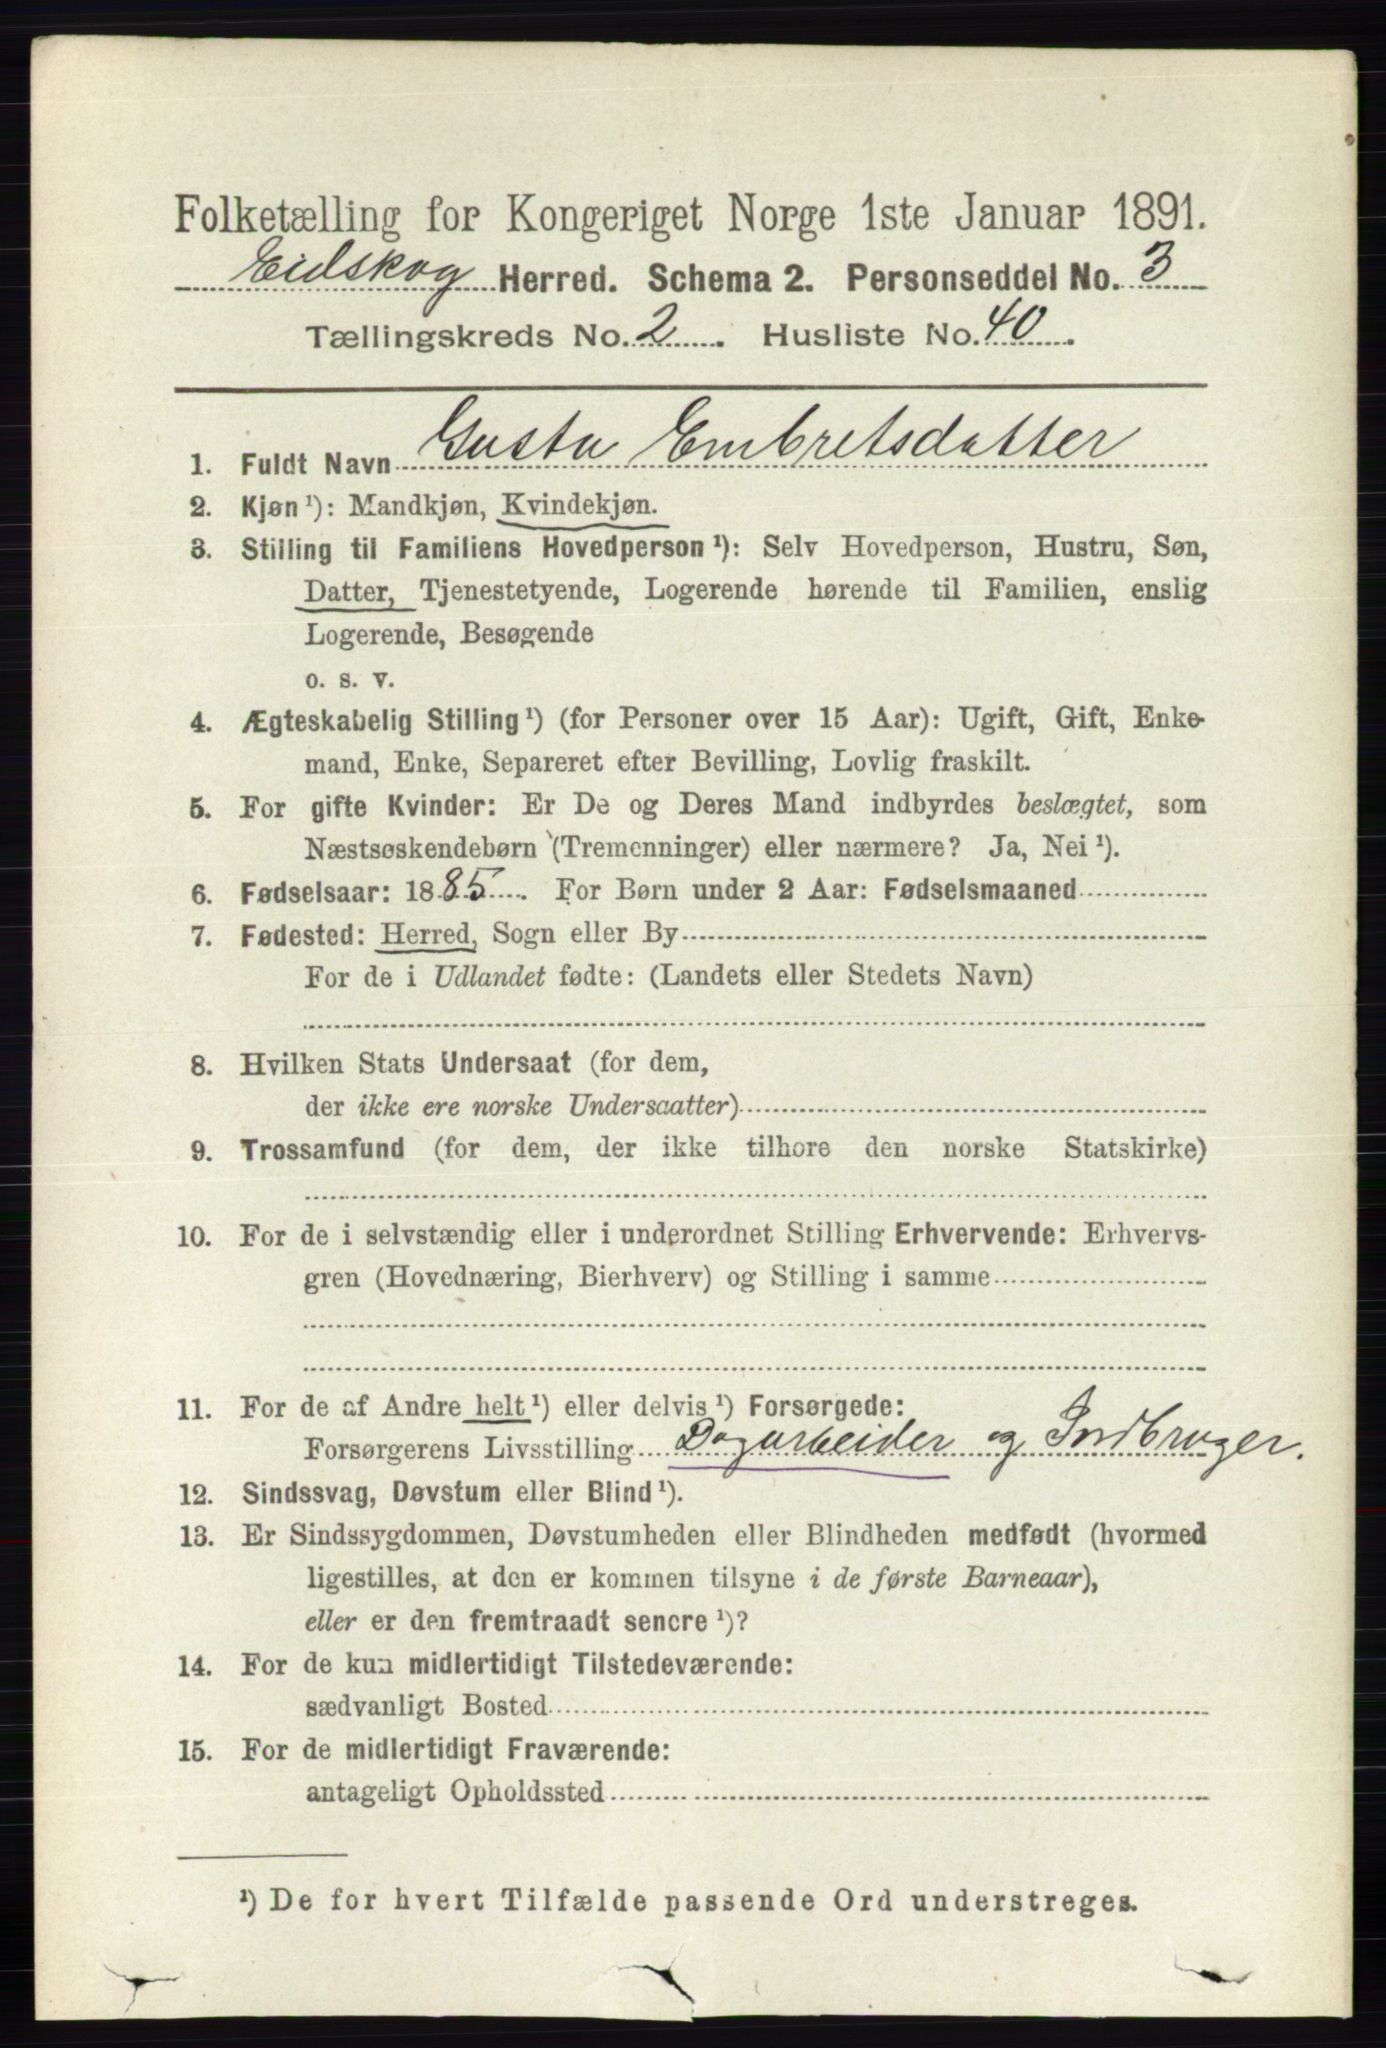 Folketælling for Kongeriget Norge 1ste Januar 1891.
Eidskog Herred. Schema 2. Personseddel No. 3
Tællingskreds No. 2. Husliste No. 40.
1. Fuldt Navn Gusta Embretsdatter
2. Kjøn¹): Mandkjøn, Kvindekjøn.
3. Stilling til Familiens Hovedperson¹): Selv Hovedperson, Hustru, Søn,
Datter, Tjenestetyende, Logerende hørende til Familien, enslig
Logerende, Besøgende
o. s. v.
4. Ægteskabelig Stilling¹) (for Personer over 15 Aar): Ugift, Gift, Enke-
mand, Enke, Separeret efter Bevilling, Lovlig fraskilt.
5. For gifte Kvinder: Er De og Deres Mand indbyrdes beslægtet, som
Næstsøskendebørn (Tremenninger) eller nærmere? Ja, Nei¹).
6. Fødselsaar: 1885. For Børn under 2 Aar: Fødselsmaaned
7. Fødested: Herred, Sogn eller By
For de i Udlandet fødte: (Landets eller Stedets Navn)
8. Hvilken Stats Undersaat (for dem,
der ikke ere norske Undersaatter)
9. Trossamfund (for dem, der ikke tilhøre den norske Statskirke)
10. For de i selvstændig eller i underordnet Stilling Erhvervende: Erhvervs-
gren (Hovednæring, Bierhverv) og Stilling i samme
11. For de af Andre helt¹) eller delvis¹) Forsørgede:
Forsørgerens Livsstilling Dagarbeider og Jordbruger.
12. Sindssvag, Døvstum eller Blind¹).
13. Er Sindssygdommen, Døvstumheden eller Blindheden medfødt (hvormed
ligestilles, at den er kommen tilsyne i de første Barneaar),
eller er den fremtraadt senere¹)?
14. For de kun midlertidigt Tilstedeværende:
sædvanligt Bosted
15. For de midlertidigt Fraværende:
antageligt Opholdssted
¹) De for hvert Tilfælde passende Ord understreges.